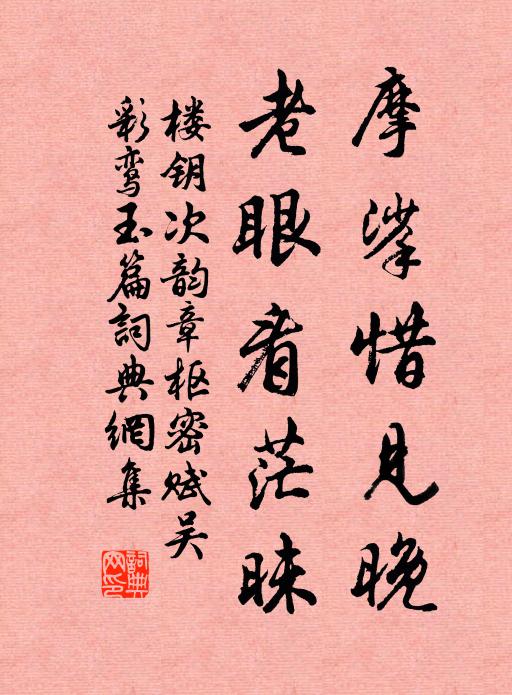 摩挲惜見晚
老眼看茫昧
楼钥次韵章枢密赋吴
彩鸾玉篇詞典網集
詞典网印